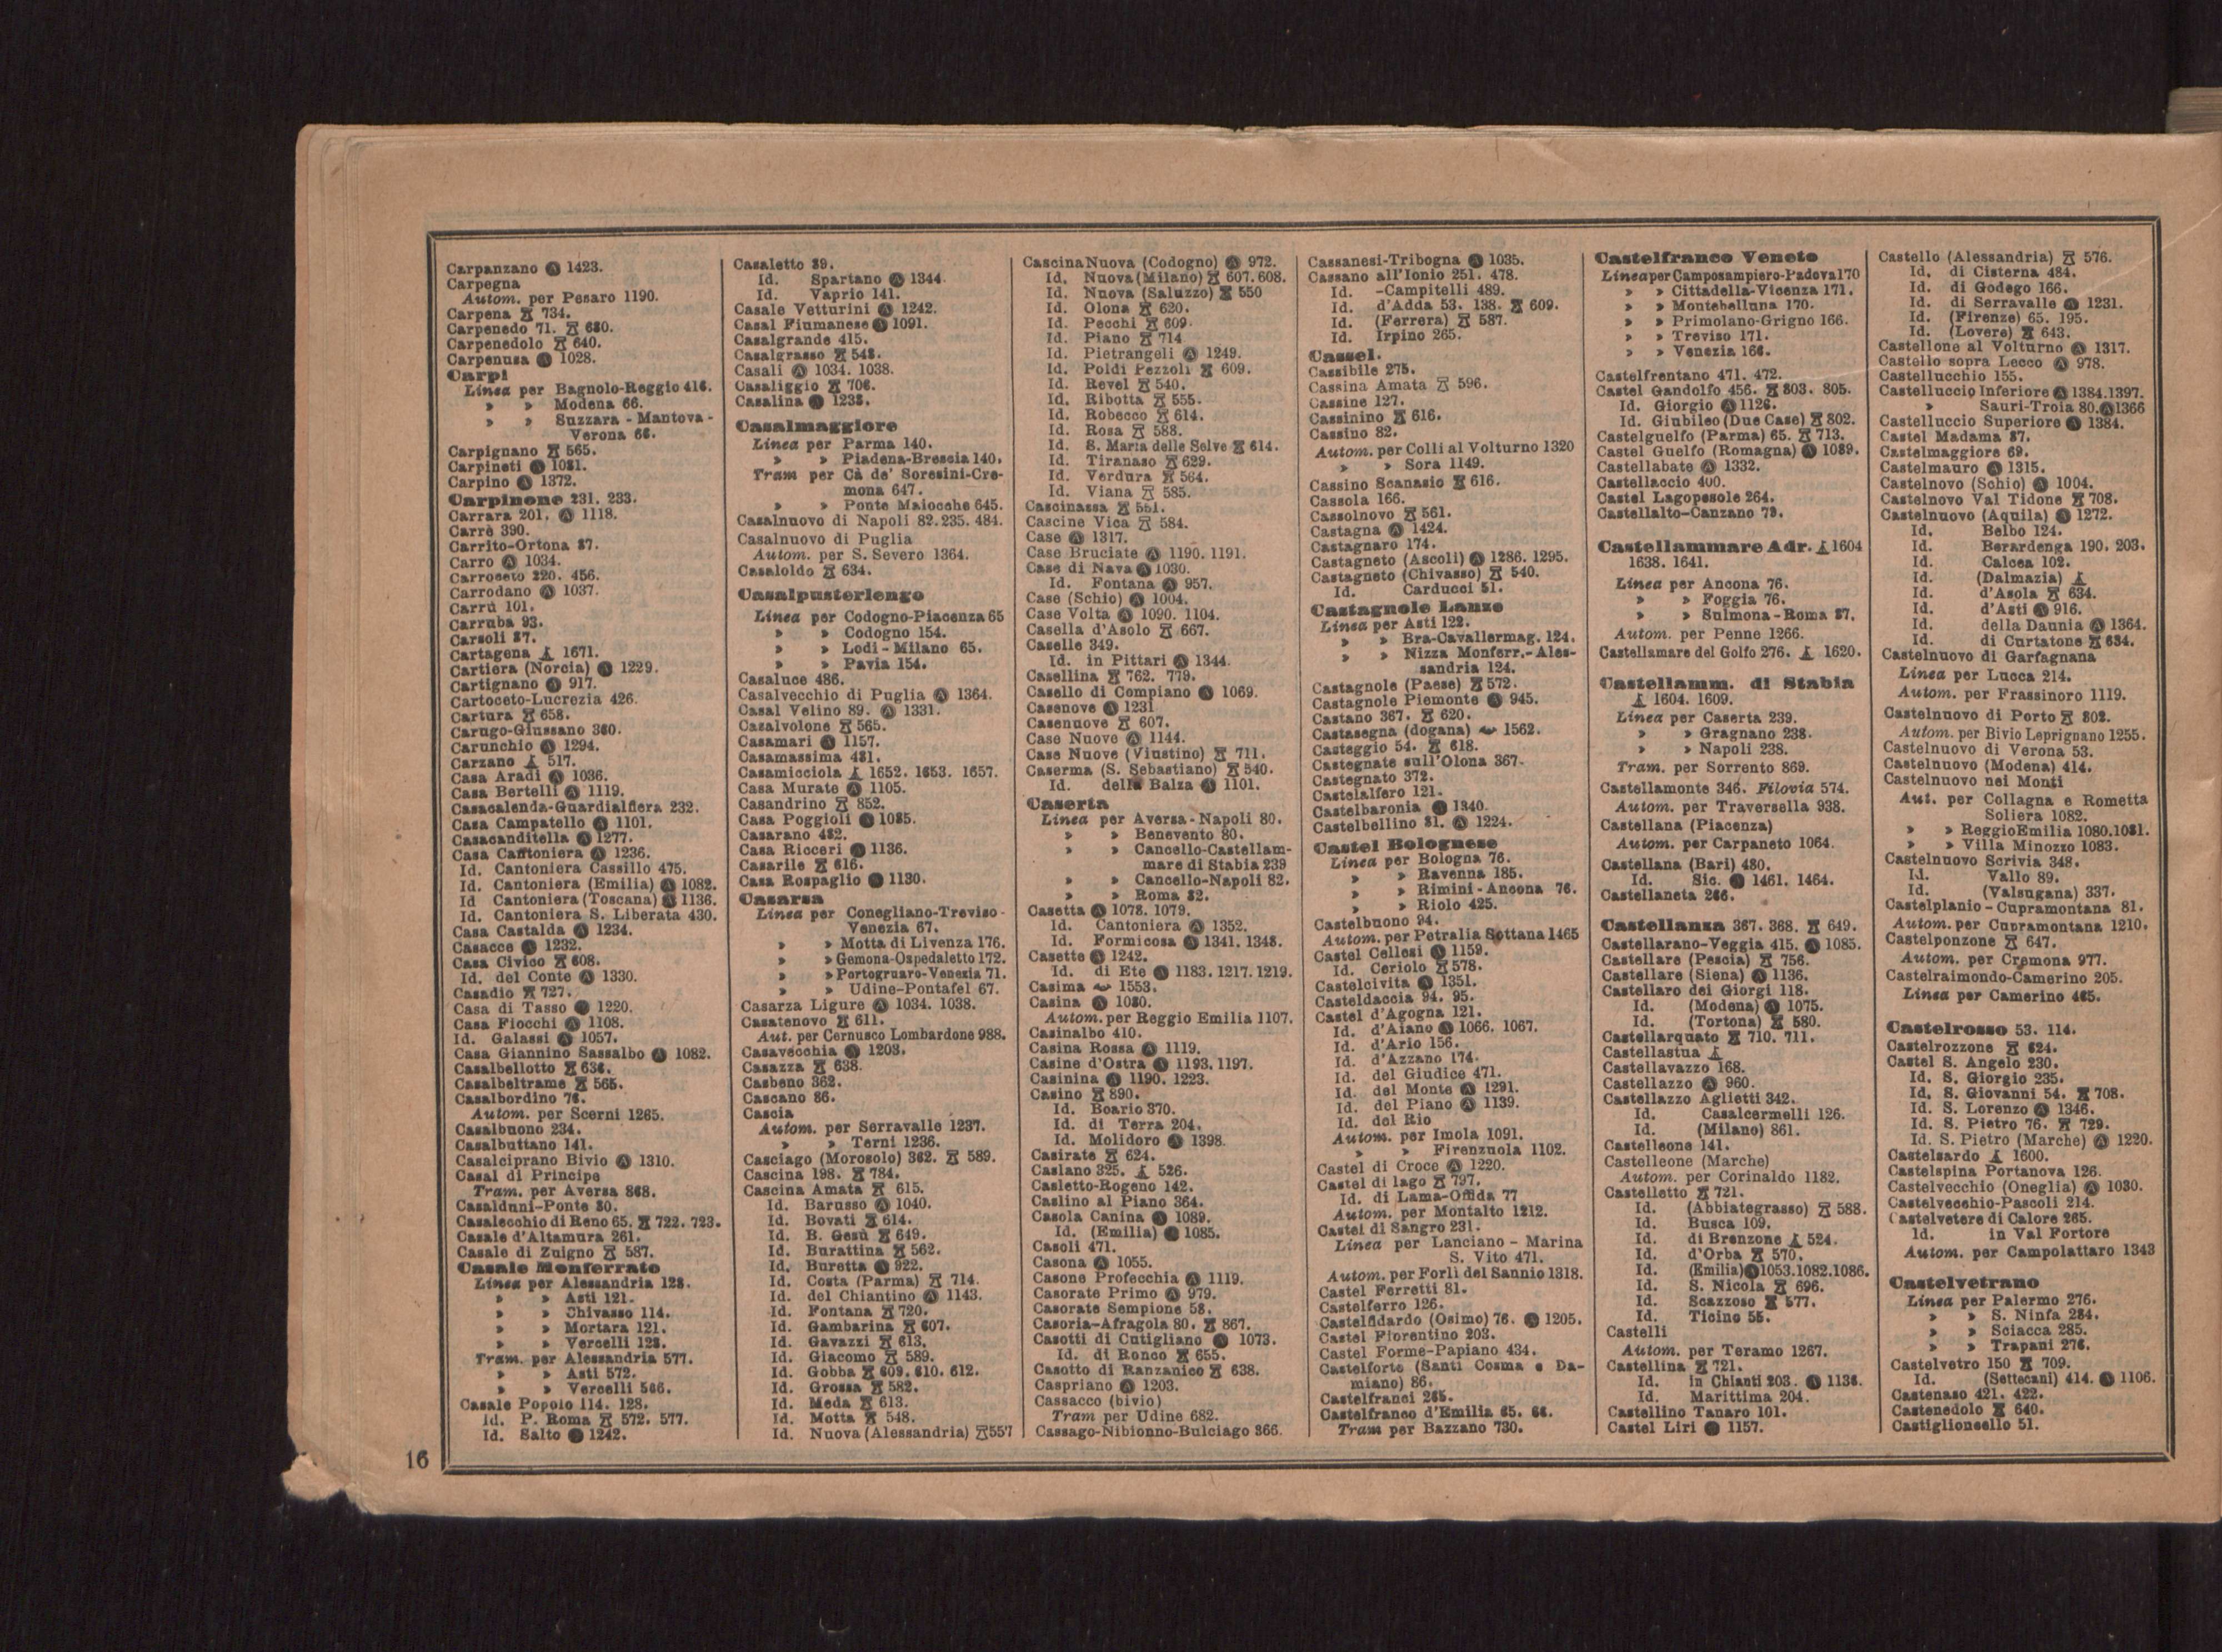 Carpanzano Ⓐ 1423.
Carpegna
Autom. per Pesaro 1190.
Carpena 734.
Carpenedo 71. 680.
Carpenedolo 640.
Carpenusa Ⓐ 1028.
Carpi
Linea per Bagnolo-Reggio 416.
» » Modena 66.
» » Suzzara - Mantova -
Verona 66.
Carpignano 565.
Carpineti Ⓐ 1081.
Carpino Ⓐ 1372.
Carpinone 231. 233.
Carrara 201. Ⓐ 1118.
Carrè 390.
Carrito-Ortona 87.
Carro Ⓐ 1034.
Carroceto 220. 456.
Carrodano Ⓐ 1037.
Carrù 101.
Carruba 93.
Carsoli 87.
Cartagena 1671.
Cartiera (Norcia) Ⓐ 1229.
Cartignano Ⓐ 917.
Cartoceto-Lucrezia 426.
Cartura 658.
Carugo-Giussano 360.
Carunchio Ⓐ 1294.
Carzano 517.
Casa Aradi Ⓐ 1036.
Casa Bertelli Ⓐ 1119.
Casacalenda-Guardialfiera 232.
Casa Campatello Ⓐ 1101.
Casacanditella Ⓐ 1277.
Casa Cantoniera Ⓐ 1236.
Id. Cantoniera Cassillo 475.
Id. Cantoniera (Emilia) Ⓐ 1082.
Id Cantoniera (Toscana) Ⓐ 1136.
Id. Cantoniera S. Liberata 430.
Casa Castalda Ⓐ 1234.
Casacce Ⓐ 1232.
Casa Civico 608.
Id. del Conte Ⓐ 1330.
Casadio 727.
Casa di Tasso Ⓐ 1220.
Casa Fiocchi Ⓐ 1108.
Id. Galassi Ⓐ 1057.
Casa Giannino Sassalbo Ⓐ 1082.
Casalbellotto 636.
Casalbeltrame 565.
Casalbordino 76.
Autom. per Scerni 1265.
Casalbuono 234.
Casalbuttano 141.
Casalciprano Bivio Ⓐ 1310.
Casal di Principe
Tram. per Aversa 868.
Casalduni-Ponte 80.
Casalecchio di Reno 65. 722. 723.
Casale d'Altamura 261.
Casale di Zuigno 587.
Casale Monferrato
Linea per Alessandria 128.
» » Asti 121.
» » Chivasso 114.
» » Mortara 121.
» » Vercelli 128.
Tram. per Alessandria 577.
» » Asti 572.
» » Vercelli 566.
Casale Popolo 114. 128.
Id. P. Roma 572. 577.
Id. Salto Ⓐ 1242.
Casaletto 89.
Id. Spartano Ⓐ 1344.
Id. Vaprio 141.
Casale Vetturini Ⓐ 1242.
Casal Fiumanese Ⓐ 1091.
Casalgrande 415.
Casalgrasso 548.
Casali Ⓐ 1034. 1038.
Casaliggio 706.
Casalina Ⓐ 1238.
Casalmaggiore
Linea per Parma 140.
» » Piadena-Brescia 140.
Tram per Cà de' Soresini-Cre-
mona 647.
» » Ponte Maiocche 645.
Casalnuovo di Napoli 82. 235. 484.
Casalnuovo di Puglia
Autom. per S. Severo 1364.
Casaloldo 634.
Casalpusterlengo
Linea per Codogno-Piacenza 65
» » Codogno 154.
» » Lodi - Milano 65.
» » Pavia 154.
Casaluce 486.
Casalvecchio di Puglia Ⓐ 1364.
Casal Velino 89. Ⓐ 1331.
Casalvolone 565.
Casamari Ⓐ 1157.
Casamassima 481.
Casamicciola 1652. 1653. 1657.
Casa Murate Ⓐ 1105.
Casandrino 852.
Casa Poggioli Ⓐ 1085.
Casarano 482.
Casa Ricceri Ⓐ 1136.
Casarile 616.
Casa Rospaglio Ⓐ 1130.
Casarsa
Linea per Conegliano-Treviso-
Venezia 67.
» » Motta di Livenza 176.
» » Gemona-Ospedaletto 172.
» » Portogruaro-Venezia 71.
» » Udine-Pontafel 67.
Casarza Ligure Ⓐ 1034. 1038.
Casatenovo 611.
Aut. per Cernusco Lombardone 988.
Casavecchia Ⓐ 1203.
Casazza 638.
Casbeno 362.
Cascano 86.
Cascia
Autom. per Serravalle 1237.
» » Terni 1236.
Casciago (Morosolo) 362. 589.
Cascina 198. 784.
Cascina Amata 615.
Id. Barusso Ⓐ 1040.
Id. Bovati 614.
Id. B. Gesù 649.
Id. Burattina 562.
Id. Buretta Ⓐ 922.
Id. Costa (Parma) 714.
Id. del Chiantino Ⓐ 1143.
Id. Fontana 720.
Id. Gambarina 607.
Id. Gavazzi 613.
Id. Giacomo 589.
Id. Gobba 609. 610. 612.
Id. Grossa 582.
Id. Meda 613.
Id. Motta 548.
Id. Nuova (Alessandria) 557
Cascina Nuova (Codogno) Ⓐ 972.
Id. Nuova (Milano) 607. 608.
Id. Nuova (Saluzzo) 550
Id. Olona 620.
Id. Pecchi 609.
Id. Piano 714
Id. Pietrangeli Ⓐ 1249.
Id. Poldi Pezzoli 609.
Id. Revel 540.
Id. Ribotta 555.
Id. Robecco 614.
Id. Rosa 588.
Id. S. Maria delle Selve 614.
Id. Tiranaso 629.
Id. Verdura 564.
Id. Viana 585.
Cascinassa 551.
Cascine Vica 584.
Case Ⓐ 1317.
Case Bruciate Ⓐ 1190. 1191.
Case di Nava Ⓐ 1030.
Id. Fontana Ⓐ 957.
Case (Schio) Ⓐ 1004.
Case Volta Ⓐ 1090. 1104.
Casella d'Asolo 667.
Caselle 349.
Id. in Pittari Ⓐ 1344.
Casellina 762. 779.
Casello di Compiano Ⓐ 1069.
Casenove Ⓐ 1231
Casenuove 607.
Case Nuove Ⓐ 1144.
Case Nuove (Viustino) 711.
Caserma (S. Sebastiano) 540.
Id. della Balza Ⓐ 1101.
Caserta
Linea per Aversa - Napoli 80.
» » Benevento 80.
» » Cancello-Castellam-
mare di Stabia 239
» » Cancello-Napoli 82.
» » Roma 82.
Casetta Ⓐ 1078. 1079.
Id. Cantoniera Ⓐ 1352.
Id. Formicosa Ⓐ 1341. 1348.
Casette Ⓐ 1242.
Id. di Ete Ⓐ 1183. 1217. 1219.
Casima 1553.
Casina Ⓐ 1080.
Autom. per Reggio Emilia 1107.
Casinalbo 410.
Casina Rossa Ⓐ 1119.
Casine d'Ostra Ⓐ 1193. 1197.
Casinina Ⓐ 1190. 1223.
Casino 890.
Id. Boario 370.
Id. di Terra 204.
Id. Molidoro Ⓐ 1398.
Casirate 624.
Caslano 325. 526.
Casletto-Rogeno 142.
Caslino al Piano 364.
Casola Canina Ⓐ 1089.
Id. (Emilia) Ⓐ 1085.
Casoli 471.
Casona Ⓐ 1055.
Casone Profecchia Ⓐ 1119.
Casorate Primo Ⓐ 979.
Casorate Sempione 58.
Casoria-Afragola 80. 867.
Casotti di Cutigliano Ⓐ 1073.
Id. di Ronco 655.
Casotto di Ranzanico 638.
Caspriano Ⓐ 1203.
Cassacco (bivio)
Tram per Udine 682.
Cassago-Nibionno-Bulciago 366.
Cassanesi-Tribogna Ⓐ 1035.
Cassano all'Ionio 251. 478.
Id. -Campitelli 489.
Id. d'Adda 53. 138. 609.
Id. (Ferrera) 587.
Id. Irpino 265.
Cassel.
Cassibile 275.
Cassina Amata 596.
Cassine 127.
Cassinino 616.
Cassino 82.
Autom. per Colli al Volturno 1320
» » Sora 1149.
Cassino Scanasio 616.
Cassola 166.
Cassolnovo 561.
Castagna Ⓐ 1424.
Castagnaro 174.
Castagneto (Ascoli) Ⓐ 1286. 1295.
Castagneto (Chivasso) 540.
Id. Carducci 51.
Castagnole Lanze
Linea per Asti 122.
» » Bra-Cavallermag. 124.
» » Nizza Monferr.-Ales-
sandria 124.
Castagnole (Paese) 572.
Castagnole Piemonte Ⓐ 945.
Castano 367. 620.
Castasegna (dogana) 1562.
Casteggio 54. 618.
Castegnate sull'Olona 367.
Castegnato 372.
Castelalfero 121.
Castelbaronia Ⓐ 1340.
Castelbellino 81. Ⓐ 1224.
Castel Bolognese
Linea per Bologna 76.
» » Ravenna 185.
» » Rimini - Ancona 76.
» » Riolo 425.
Castelbuono 94.
Autom. per Petralia Sottana 1465
Castel Cellesi Ⓐ 1159.
Id. Ceriolo 578.
Castelcivita Ⓐ 1351.
Casteldaccia 94. 95.
Castel d'Agogna 121.
Id. d'Aiano Ⓐ 1066. 1067.
Id. d'Ario 156.
Id. d'Azzano 174.
Id. del Giudice 471.
Id. del Monte Ⓐ 1291.
Id. del Piano Ⓐ 1139.
Id. del Rio
Autom. per Imola 1091.
» » Firenzuola 1102.
Castel di Croce Ⓐ 1220.
Castel di lago 797.
Id. di Lama-Offida 77
Autom. per Montalto 1212.
Castel di Sangro 231.
Linea per Lanciano - Marina
S. Vito 471.
Autom. per Forlì del Sannio 1318.
Castel Ferretti 81.
Castelferro 126.
Castelfidardo (Osimo) 76. Ⓐ 1205.
Castel Fiorentino 203.
Castel Forme-Papiano 434.
Castelforte (Santi Cosma e Da-
miano) 86.
Castelfranci 265.
Castelfranco d'Emilia 65. 66.
Tram per Bazzano 730.
Castelfranco Veneto
Linea per Camposampiero-Padova 170
» » Cittadella-Vicenza 171.
» » Montebelluna 170.
» » Primolano-Grigno 166.
» » Treviso 171.
» » Venezia 166.
Castelfrentano 471. 472.
Castel Gandolfo 456. 803. 805.
Id. Giorgio Ⓐ 1126.
Id. Giubileo (Due Case) 802.
Castelguelfo (Parma) 65. 713.
Castel Guelfo (Romagna) Ⓐ 1089.
Castellabate Ⓐ 1332.
Castellaccio 400.
Castel Lagopesole 264.
Castellalto-Canzano 79.
Castellammare Adr. 1604
1638. 1641.
Linea per Ancona 76.
» » Foggia 76.
» » Sulmona - Roma 87.
Autom. per Penne 1266.
Castellamare del Golfo 276. 1620.
Castellamm. di Stabia
1604. 1609.
Linea per Caserta 239.
» » Gragnano 238.
» » Napoli 238.
Tram. per Sorrento 869.
Castellamonte 346. Filovia 574.
Autom. per Traversella 938.
Castellana (Piacenza)
Autom. per Carpaneto 1064.
Castellana (Bari) 480.
Id. Sic. Ⓐ 1461. 1464.
Castellaneta 266.
Castellanza 367. 368. 649.
Castellarano-Veggia 415. Ⓐ 1085.
Castellare (Pescia) 756.
Castellare (Siena) Ⓐ 1136.
Castellaro dei Giorgi 118.
Id. (Modena) Ⓐ 1075.
Id. (Tortona) 580.
Castellarquato 710. 711.
Castellastua
Castellavazzo 168.
Castellazzo Ⓐ 960.
Castellazzo Aglietti 342.
Id. Casalcermelli 126.
Id. (Milano) 861.
Castelleone 141.
Castelleone (Marche)
Autom. per Corinaldo 1182.
Castelletto 721.
Id. (Abbiategrasso) 588.
Id. Busca 109.
Id. di Brenzone 524.
Id. d'Orba 570.
Id. (Emilia) Ⓐ 1053. 1082. 1086.
Id. S. Nicola 696.
Id. Scazzoso 577.
Id. Ticino 55.
Castelli
Autom. per Teramo 1267.
Castellina 721.
Id. in Chianti 203. Ⓐ 1136.
Id. Marittima 204.
Castellino Tanaro 101.
Castel Liri Ⓐ 1157.
Castello (Alessandria) 576.
Id. di Cisterna 484.
Id. di Godego 166.
Id. di Serravalle Ⓐ 1231.
Id. (Firenze) 65. 195.
Id. (Lovere) 643.
Castellone al Volturno Ⓐ 1317.
Castello sopra Lecco Ⓐ 978.
Castellucchio 155.
Castelluccio Inferiore Ⓐ 1384. 1397.
» Sauri-Troia 80. Ⓐ 1366
Castelluccio Superiore Ⓐ 1384.
Castel Madama 87.
Castelmaggiore 69.
Castelmauro Ⓐ 1315.
Castelnovo (Schio) Ⓐ 1004.
Castelnovo Val Tidone 708.
Castelnuovo (Aquila) Ⓐ 1272.
Id. Belbo 124.
Id. Berardenga 190. 203.
Id. Calcea 102.
Id. (Dalmazia)
Id. d'Asola 634.
Id. d'Asti Ⓐ 916.
Id. della Daunia Ⓐ 1364.
Id. di Curtatone 634.
Castelnuovo di Garfagnana
Linea per Lucca 214.
Autom. per Frassinoro 1119.
Castelnuovo di Porto 802.
Autom. per Bivio Leprignano 1255.
Castelnuovo di Verona 53.
Castelnuovo (Modena) 414.
Castelnuovo nei Monti
Aut. per Collagna e Rometta
Soliera 1082.
» » Reggio Emilia 1080. 1081.
» » Villa Minozzo 1083.
Castelnuovo Scrivia 348.
Id. Vallo 89.
Id. (Valsugana) 337.
Castelplanio - Cupramontana 81.
Autom. per Cupramontana 1210.
Castelponzone 647.
Autom. per Cremona 977.
Castelraimondo-Camerino 205.
Linea per Camerino 465.
Castelrosso 53. 114.
Castelrozzone 624.
Castel S. Angelo 230.
Id. S. Giorgio 235.
Id. S. Giovanni 54. 708.
Id. S. Lorenzo Ⓐ 1346.
Id. S. Pietro 76. 729.
Id. S. Pietro (Marche) Ⓐ 1220.
Castelsardo 1600.
Castelspina Portanova 126.
Castelvecchio (Oneglia) Ⓐ 1030.
Castelvecchio-Pascoli 214.
Castelvetere di Calore 265.
Id. in Val Fortore
Autom. per Campolattaro 1343
Castelvetrano
Linea per Palermo 276.
» » S. Ninfa 284.
» » Sciacca 285.
» » Trapani 276.
Castelvetro 150 709.
Id. (Settecani) 414. Ⓐ 1106.
Castenaso 421. 422.
Castenedolo 640.
Castiglioncello 51.
16